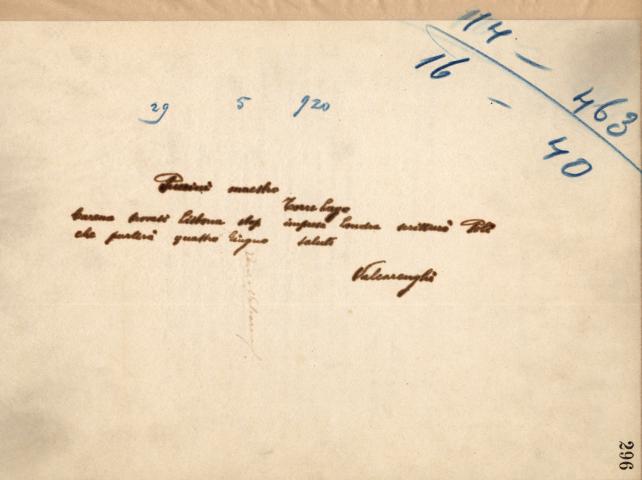 114 - 463
16 - 40
29 5 920
Puccini maestro
Torre Lago
trovasi Lisbona stp impresa Londra scritturò Poli
che partirà quattro Giugno saluti
Valcarenghi
296